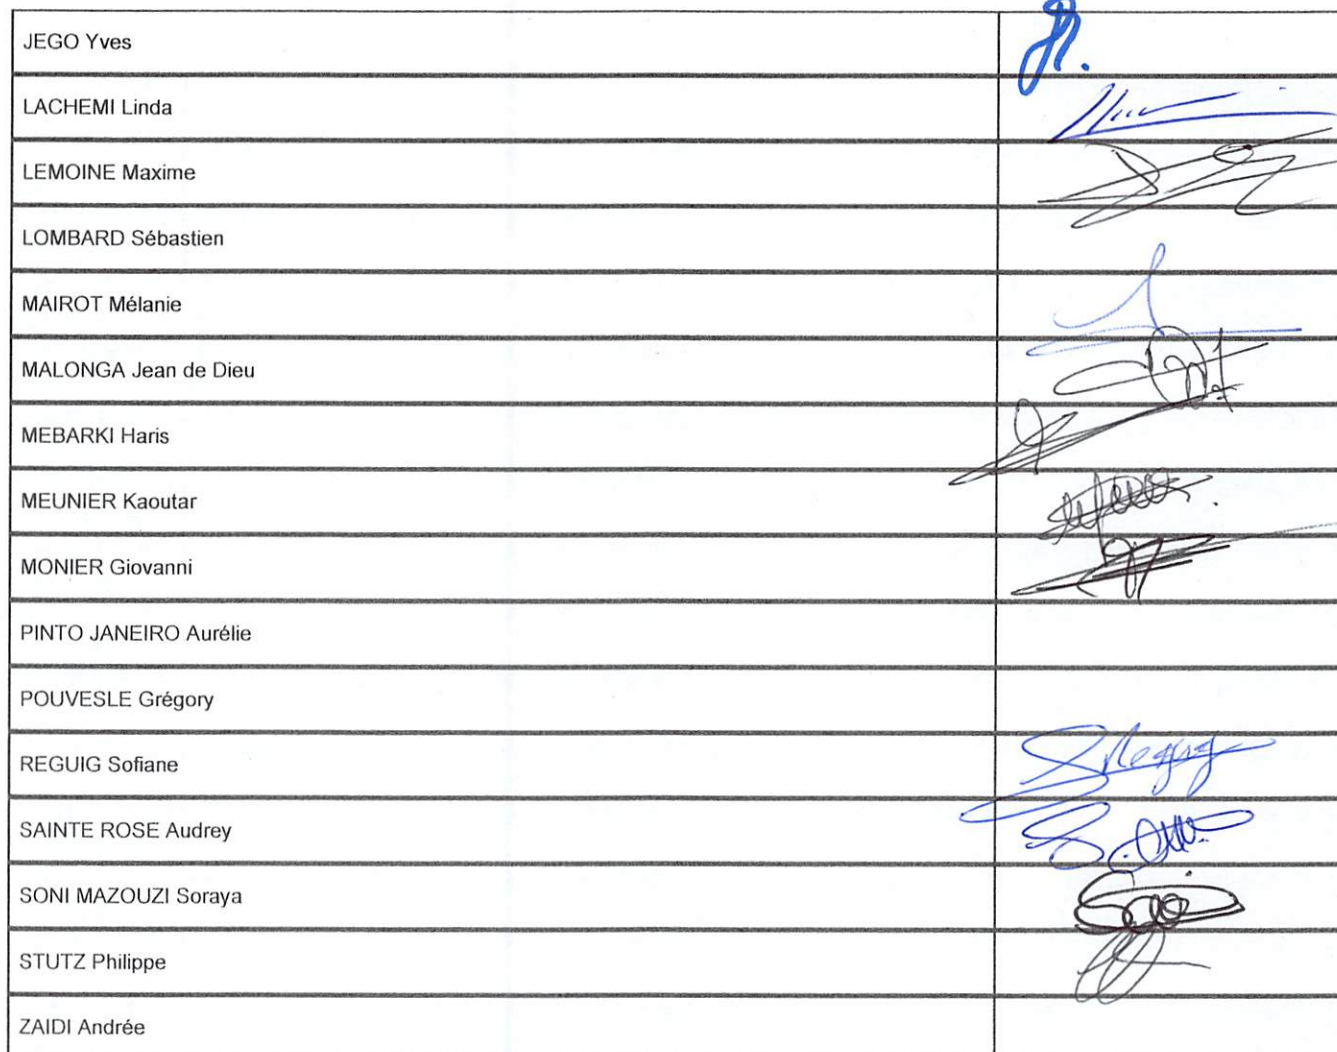 JEGO Yves
LACHEMI Linda
LEMOINE Maxime
LOMBARD Sébastien
MAIROT Mélanie
MALONGA Jean de Dieu
MEBARKI Haris
MEUNIER Kaoutar
MONIER Giovanni
PINTO JANEIRO Aurélie
POUVESLE Grégory
REGUIG Sofiane
SAINTE ROSE Audrey
SONI MAZOUZI Soraya
STUTZ Philippe
ZAIDI Andrée